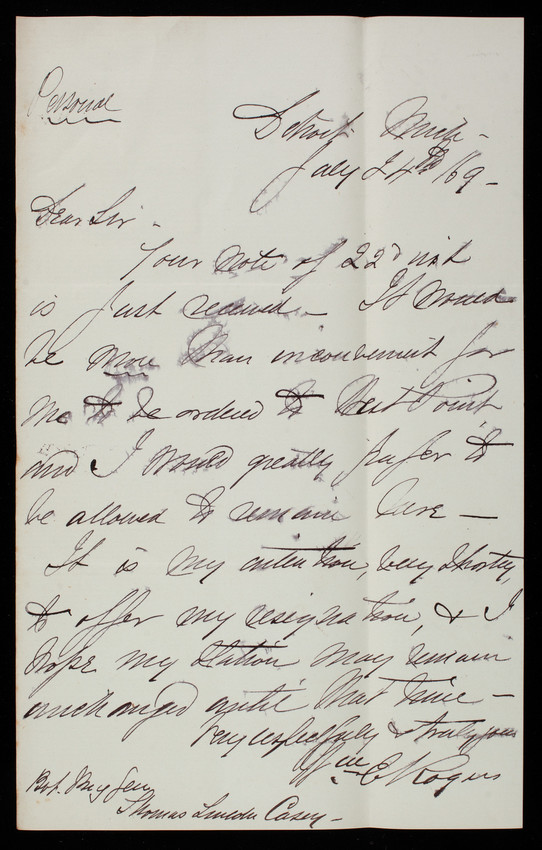 Personal
Detroit Mich -
July 24th /69 -
Dear Sir -
Your note of 22d
is just received - It would
be more than inconvenient for
me to be ordered to West Point
and I would greatly prefer to
be allowed to remain here -
It is my intention, very shortly,
to offer my resignation, & I
hope my station may remain
unchanged until that time -
Very respectfully & truly yours
Wm E Rogers
Bvt. Brig Gen
Thomas Lincoln Casey -